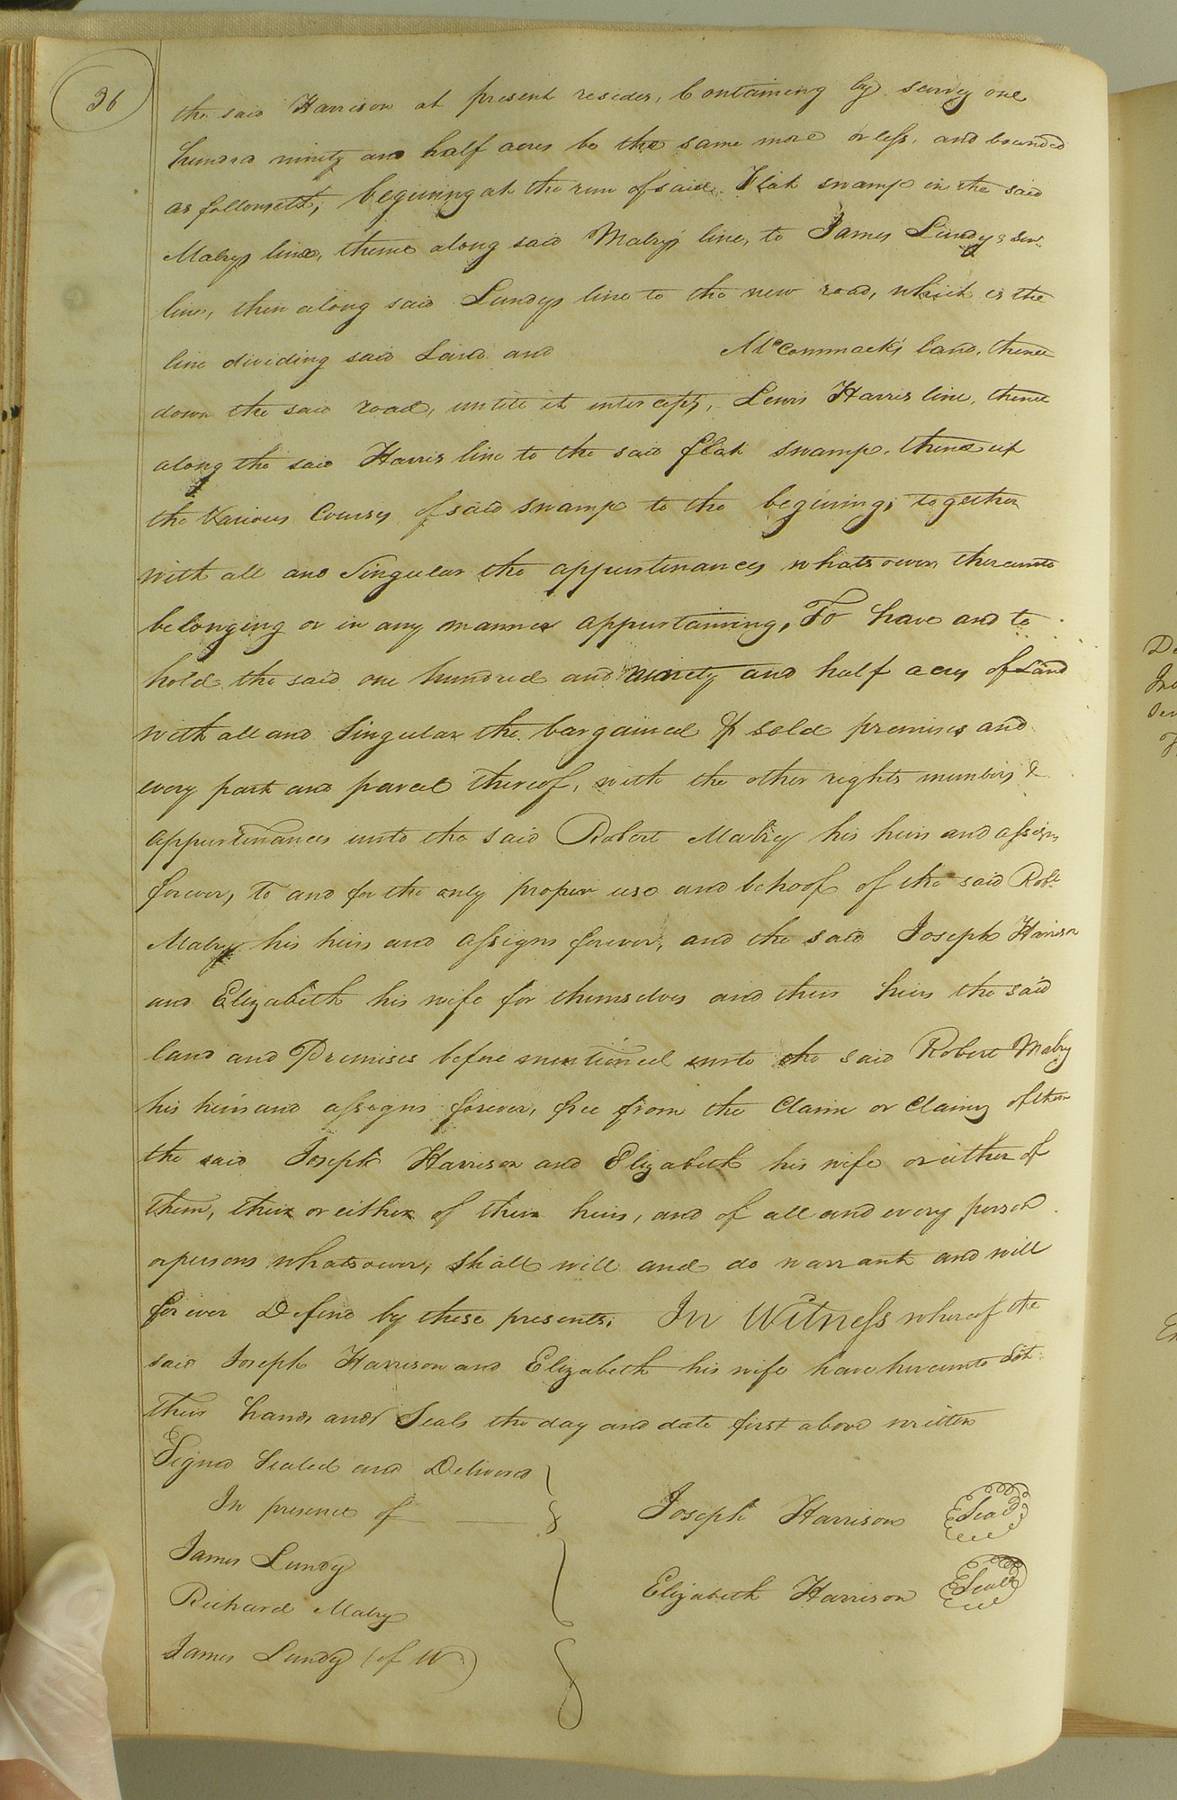 36
the said Harrison at present resides, Containing by survey one
hundred ninety and half acres be the same more or less, and bounded
as followeth; begining at the run of said Flat swamp in the said
Mabrys line, thence along said Mabrys line, to James Lundys Senr.
line, then along said Lundys line to the new road, which is the
line dividing said Land and McCommack's land, thence
down the said road, untill it intercepts, Lewis Harris line, thence
along the said Harris line to the said flat swamp, thence up
the Various Courses of said swamp to the begining; together
with all and Singular the appurtenances whatsoever thereunto
belonging or in any manner appurtaining, To have and to
hold the said one hundred and ninety and half acres of Land
with all and Singular the bargained & sold premises and
every part and parcel thereof, with the other rights members &
appurtenances unto the said Robert Mabry his heirs and assigns
forever, to and for the only proper use and behoof of the said Robt.
Mabry his heirs and assigns forever, and the said Joseph Harrison
and Elizabeth his wife for themselves and their heirs the said
land and Premises before mentioned unto the said Robert Mabry
his heirs and assigns forever, free from the Claim or Claims of them
the said Joseph Harrison and Elizabeth his wife or either of
them, their or either of their heirs, and of all and every person
or persons whatsoever, shall will and do warrant and will
forever Defend by these presents. In Witness whereof the
said Joseph Harrison and Elizabeth his wife have hereunto Set
their hands and Seals the day and date first above written
Signed Sealed and Delivered
In presence of
Joseph Harrison Seal
James Lundy
Elizabeth Harrison Seal
Richard Mabry
James Lundy (of W)